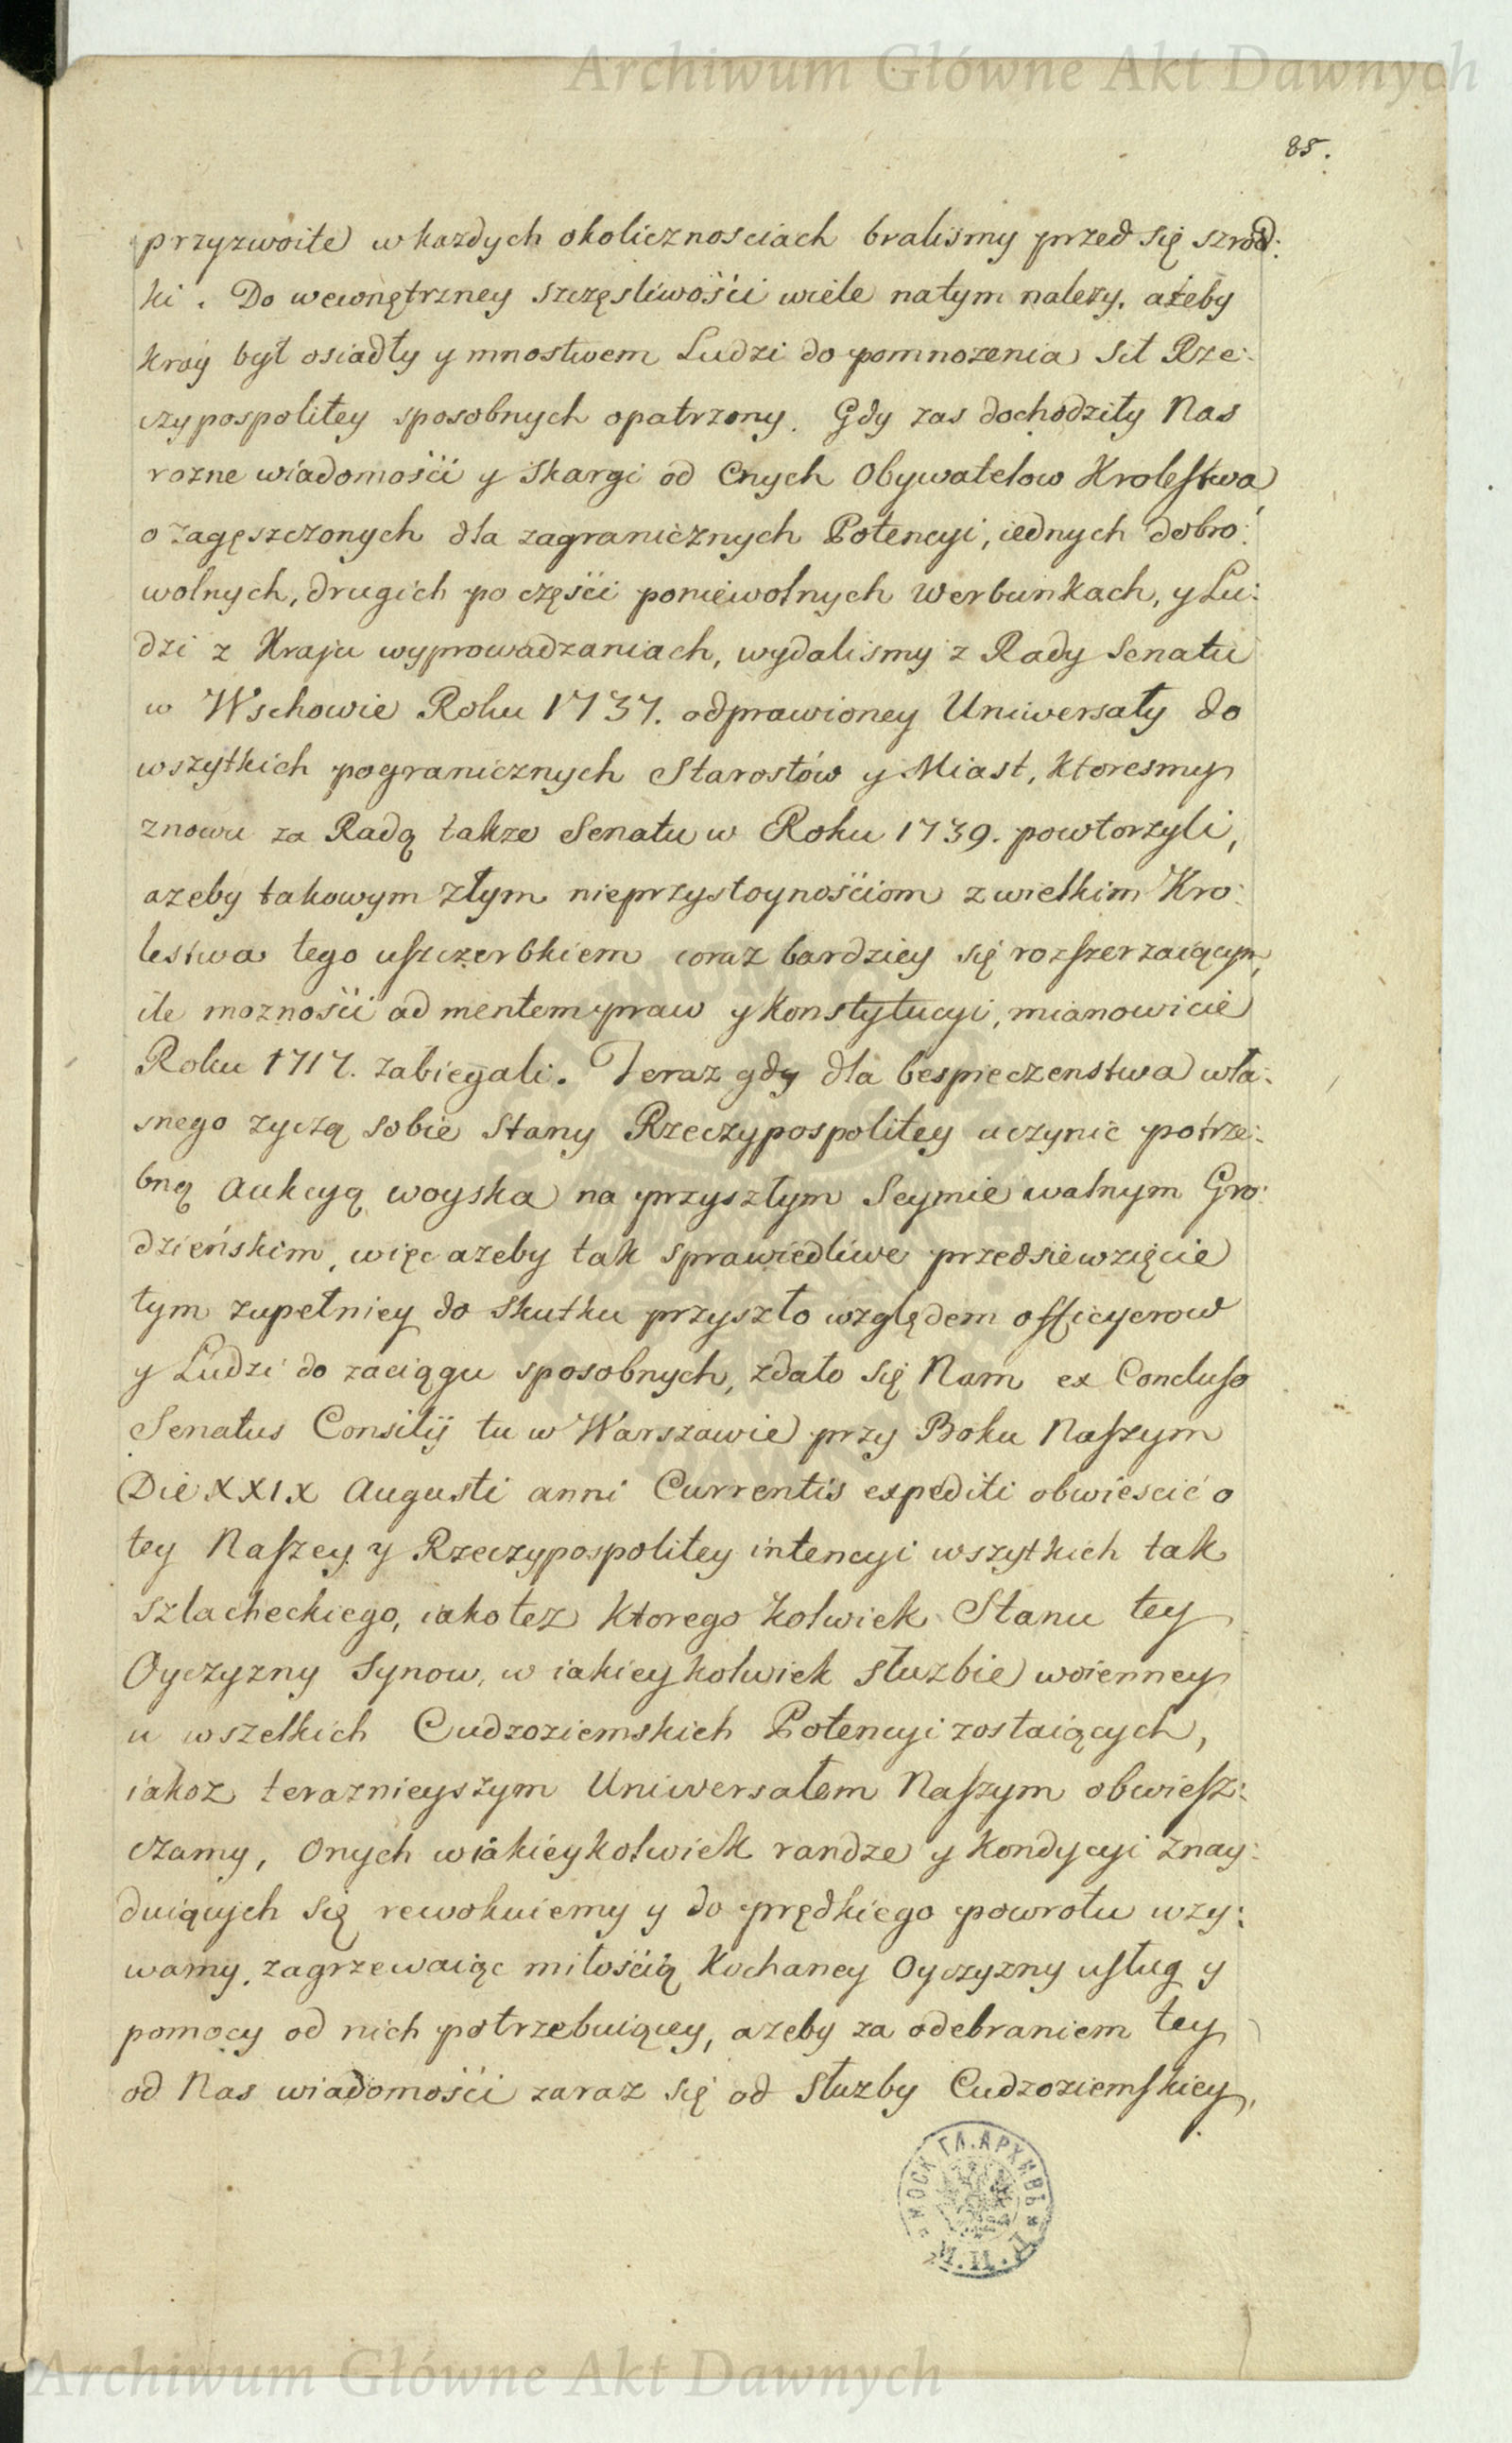 Archiwum Główne Akt Dawnych
85.
przyzwoite w kazdych okolicznosciach bralismy przed się szrod:
ki. Do wewnętrzney szczęsliwości wiele natym nalezy. ażeby
kray był osiadły y mnostwem Ludzi do pomnozenia sił Rze:
czypospolitey sposobnych opatrzony. Gdy zas dochodziły Nas
rozne wiadomości y skargi od Cnych Obywatelow Krolestwa
o zagęszczonych dla zagranicznych Potencyi, iednych dobro:
wolnych, drugich po części poniewolnych werbunkach, y Lu:
dzi z Kraju wyprowadzaniach, wydalismy z Rady Senatu
w Wschowie Roku 1737. odprawioney Uniwersały do
wszytkich pogranicznych Starostów y Miast, ktoresmy
znowu za Radą takze Senatu w Roku 1739. powtorzyli,
azeby takowym złym nieprzystoynościom z wielkim Kro:
lestwa tego uszczerbkiem coraz bardziey się rozszerzaiącym,
ile mozności ad mentem praw y Konstytucyi, mianowicie
Roku 1717. zabiegali. Teraz gdy dla bespieczenstwa wła:
snego zyczą sobie Stany Rzeczypospolitey uczynic potrze:
bną aukcyą woyska na przyszłym Seymie walnym Gro:
dzieńskim, więc azeby tak sprawiedliwe przedsiewzięcie
tym zupełniey do skutku przyszło względem officyerow
y Ludzi do zaciągu sposobnych, zdało się Nam ex Concluso
Senatus Consilij tu w Warszawie przy Boku Naszym
Die XXIX Augusti anni Currentis expediti obwieścić o
tey Naszey y Rzeczypospolitey intencyi wszytkich tak
szlacheckiego, iako tez ktorego kolwiek Stanu tey
Oyczyzny synow, w iakieykolwiek służbie woienney
u wszelkich Cudzoziemskich Potencyi zostaiących,
iakoz teraznieyszym Uniwersałem Naszym obwiesz:
czamy, Onych w iakieykolwiek randze y Kondycyi znay:
duiących się rewokuiemy y do prędkiego powrotu wzy:
wamy, zagrzewaiąc miłością Kochaney Oyczyzny usług y
pomocy od nich potrzebuiącey, azeby za odebraniem tey
od Nas wiadomości zaraz się od służby Cudzoziemskiey,
МОСК. ГЛ. АРХИВЪ
М.И.Д.
Archiwum Główne Akt Dawnych